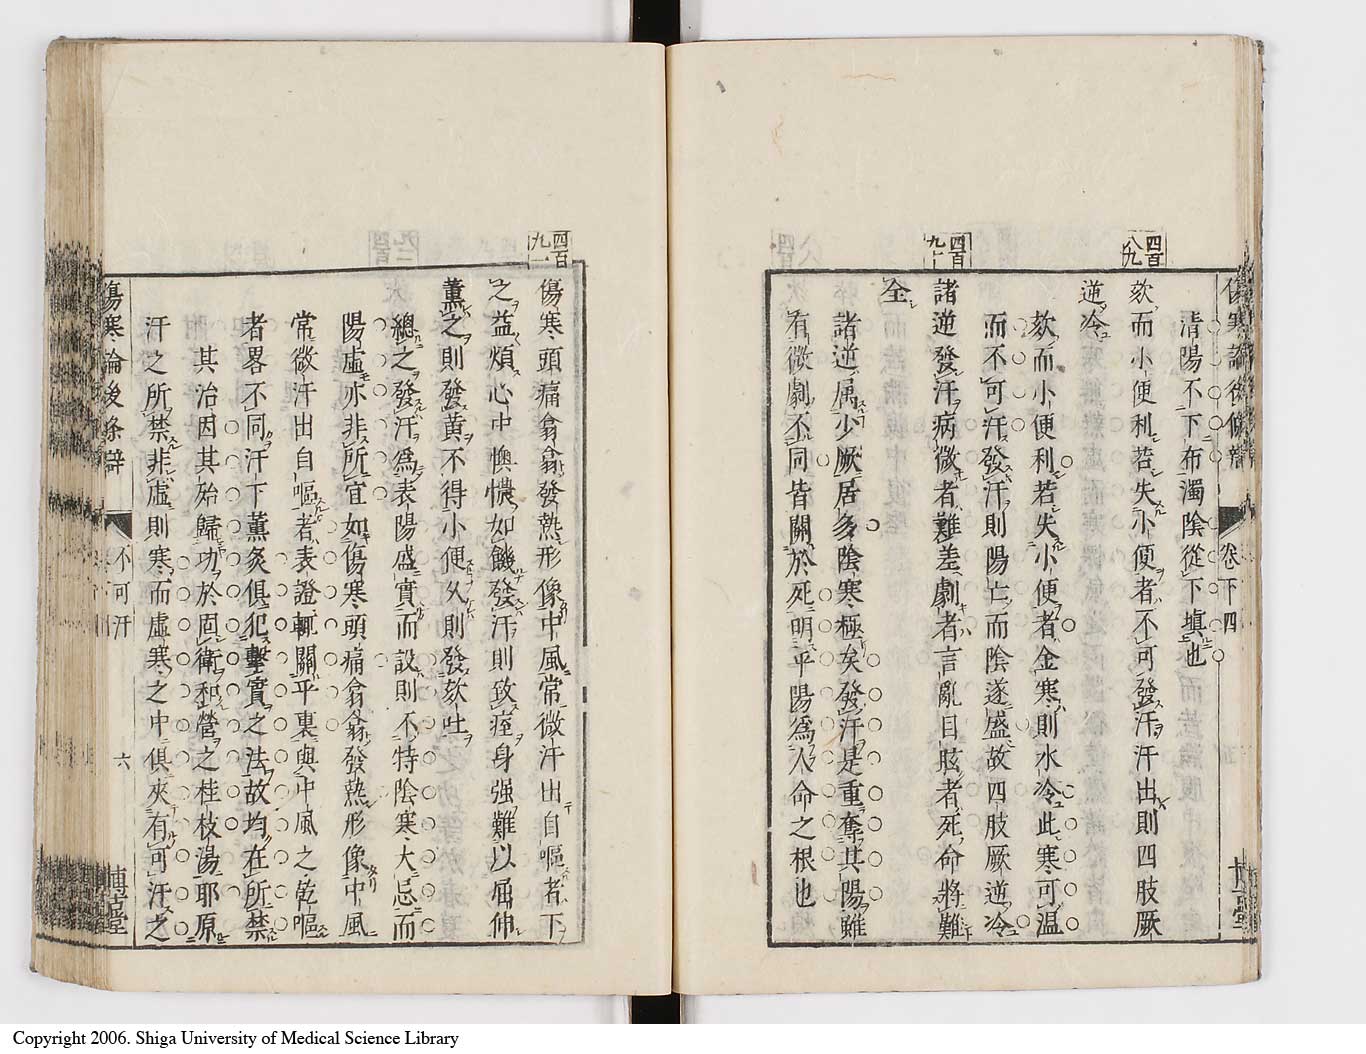 傷寒論後條辨
卷下四
清陽不下布濁陰從下填也
四百八九
欬而小便利若失小便者不可發汗汗出則四肢厥
逆冷
欬而小便利若失小便者金寒則水冷此寒可温
而不可汗發汗則陽亡而陰遂盛故四肢厥逆冷
四百九十
諸逆發汗病微者難差劇者言亂目眩者死命將難
全
諸逆属少厥居多陰寒極矣發汗是重奪其陽雖
有微劇不同皆關於死明平陽為人命之根也
四百九一
傷寒頭痛翕翕發熱形像中風常微汗出自嘔者下
之益煩心中懊憹如饑發汗則致痓身强難以屈伸
薰之則發黄不得小便久則發欬吐
總之發汗為表陽盛實而設則不特陰寒大忌而
陽虛亦非所宜如傷寒頭痛翕翕發熱形像中風
常微汗出自嘔者表證輒關平裏與中風之乾嘔
者畧不同汗下薰灸俱犯擊實之法故均在所禁
其治因其始歸功於固衛和營之桂枝湯耶原
汗之所禁非虛則寒而虛寒之中俱夾有可汗之
傷寒論後条辯
不可汗
六
博古堂
Copyright 2006. Shiga University of Medical Science Library